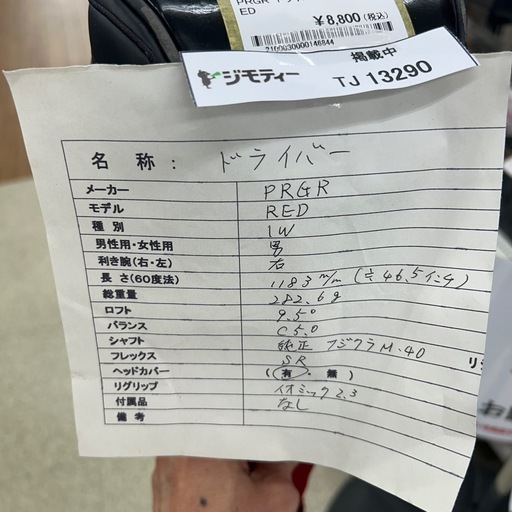 PRGR
ED
¥8,800(税込)
2100030000146844
ジモティー
掲載中
TJ 13290
名 称 : ドライバー
メーカー PRGR
モデル RED
種 別 1W
男性用・女性用 男
利き腕(右・左) 右
長 さ(60度法) 1183 m/m (≒46.5インチ)
総重量 282.6g
ロフト 9.5°
バランス C5.0
シャフト 純正 フジクラ M-40
フレックス SR
ヘッドカバー (有・無)
リグリップ イオミック2.3
付属品 なし
備 考
リシ
お